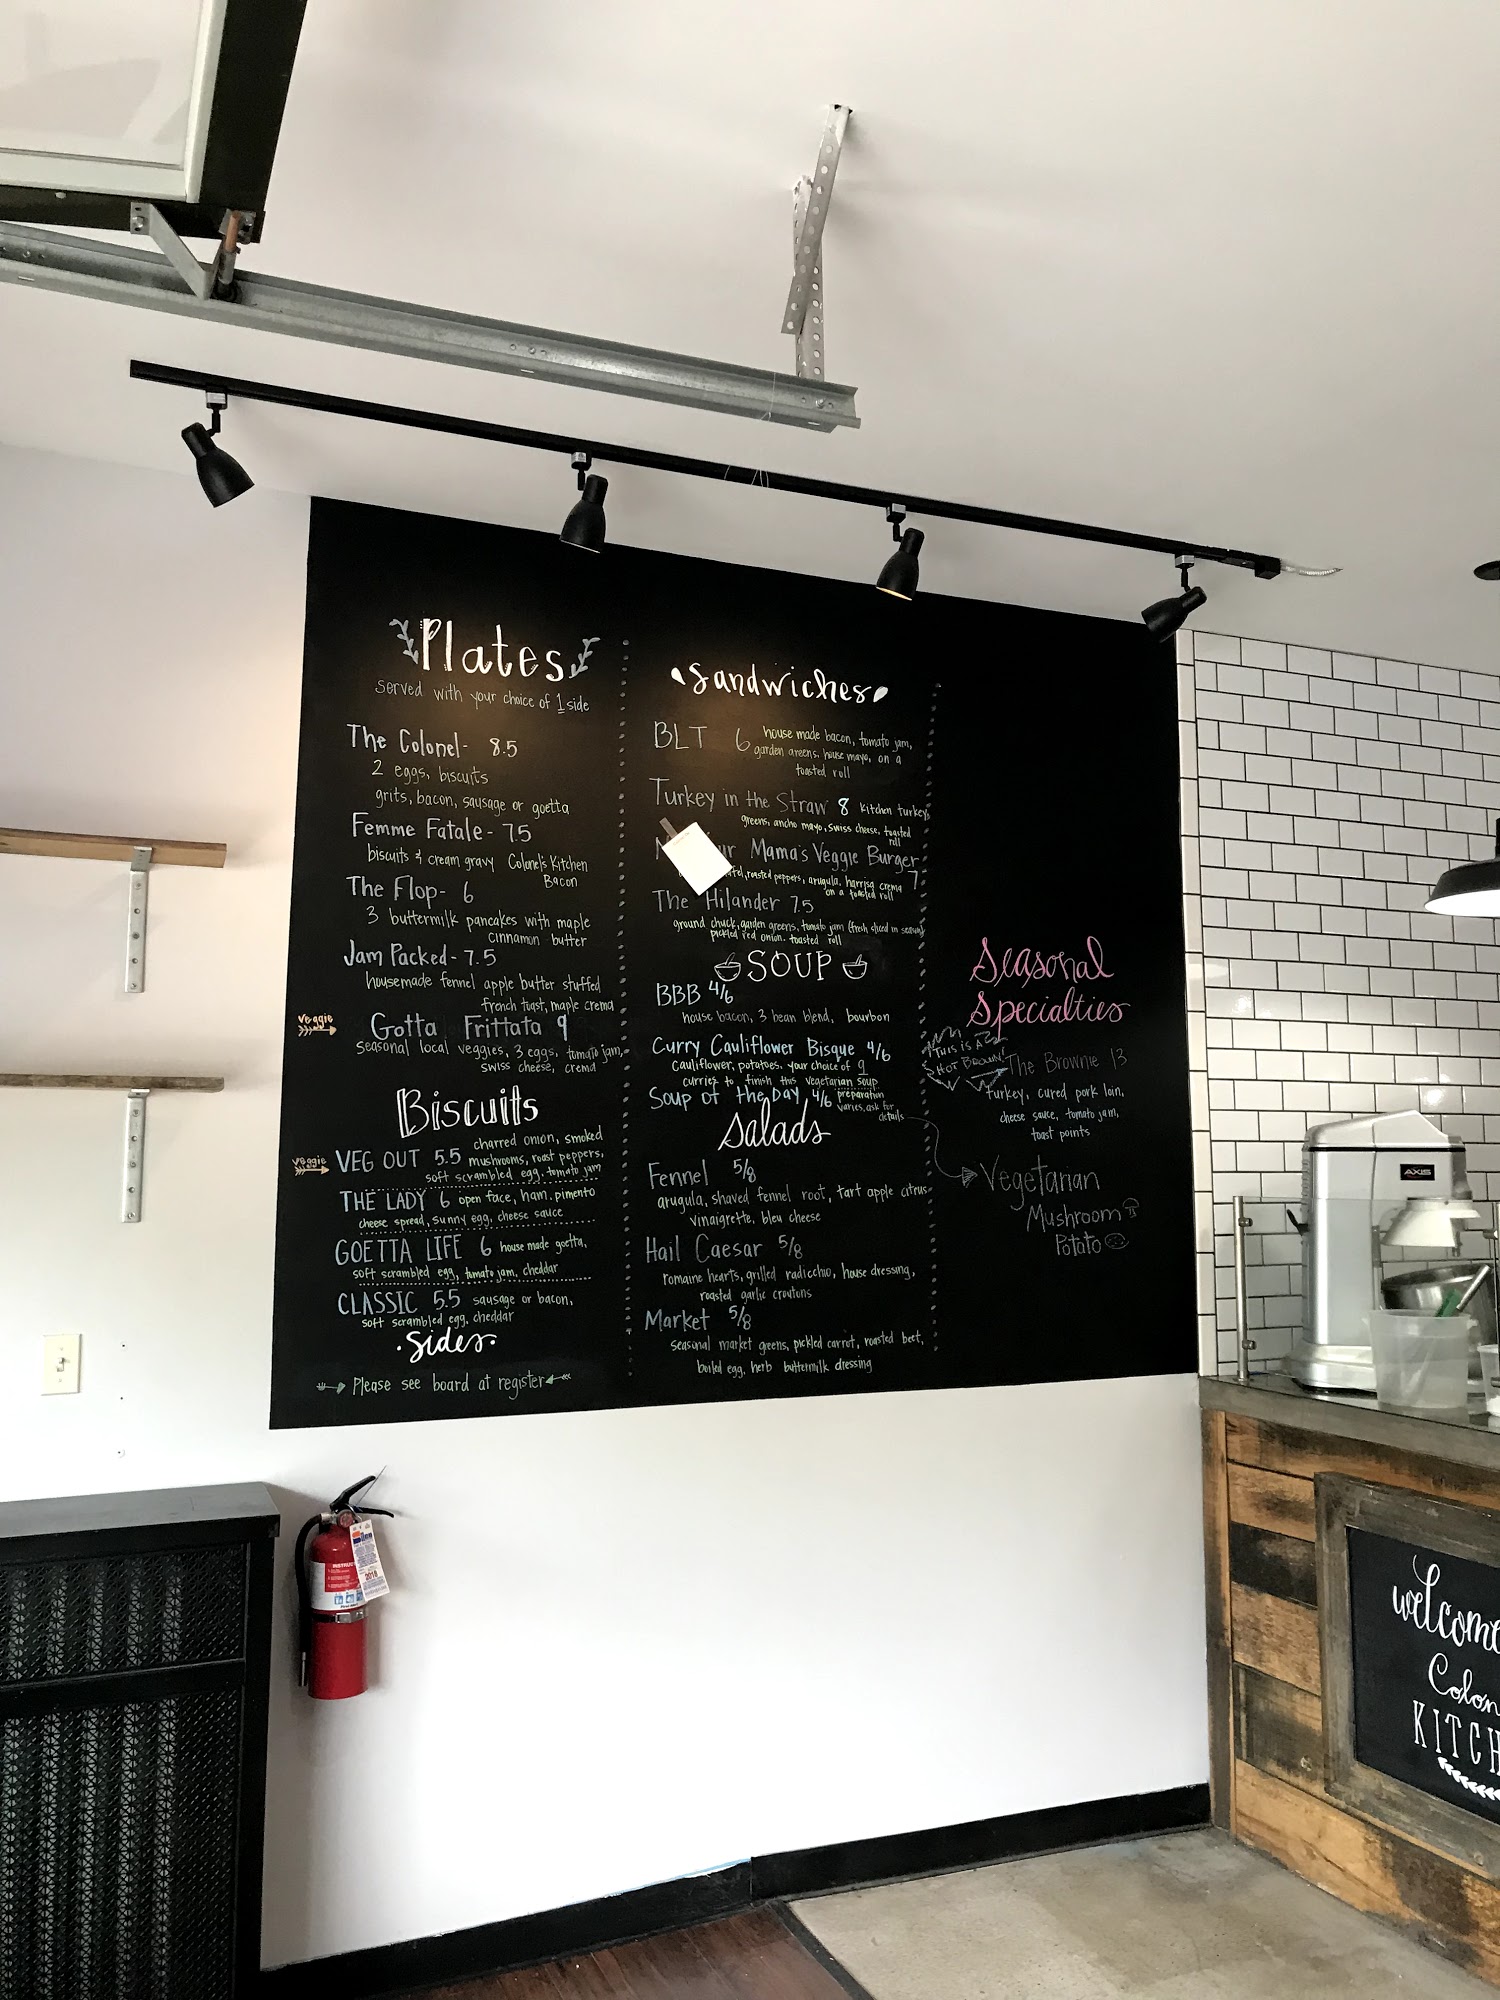 Plates
served with your choice of 1 side
The Colonel- 8.5
2 eggs, biscuits
grits, bacon, sausage or goetta
Femme Fatale- 7.5
biscuits & cream gravy Colonel's Kitchen
Bacon
The Flop- 6
3 buttermilk pancakes with maple
cinnamon butter
Jam Packed- 7.5
housemade fennel apple butter stuffed
french toast, maple crema
veggie
Gotta Frittata 9
seasonal local veggies, 3 eggs, tomato jam,
swiss cheese, crema
Biscuits
charred onion, smoked
veggie
VEG OUT 5.5 mushrooms, roast peppers,
soft scrambled egg, tomato jam
THE LADY 6 open face, ham, pimento
cheese spread, sunny egg, cheese sauce
GOETTA LIFE 6 house made goetta,
soft scrambled egg, tomato jam, cheddar
CLASSIC 5.5 sausage or bacon,
soft scrambled egg, cheddar
Sides
Please see board at register
Sandwiches
BLT 6 house made bacon, tomato jam,
garden greens, house mayo, on a
toasted roll
Turkey in the Straw 8 kitchen turkey,
greens, ancho mayo, swiss cheese, toasted
roll
Mama's Veggie Burger
roasted peppers, arugula, harrisa crema 7
on a toasted roll
The Hilander 7.5
ground chuck, garden greens, tomato jam (fresh sliced in season)
pickled red onion, toasted roll
SOUP
BBB 4/6
house bacon, 3 bean blend, bourbon
Curry Cauliflower Bisque 4/6
Cauliflower, potatoes, your choice of 9
curries to finish this vegetarian soup
Soup of the Day 4/6 preparation
varies, ask for
details
Salads
Fennel 5/8
arugula, shaved fennel root, tart apple citrus
vinaigrette, bleu cheese
Hail Caesar 5/8
romaine hearts, grilled radicchio, house dressing,
roasted garlic croutons
Market 5/8
seasonal market greens, pickled carrot, roasted beet,
boiled egg, herb buttermilk dressing
Seasonal
Specialties
THIS IS A
HOT BROWN!
The Brownie 13
turkey, cured pork loin,
cheese sauce, tomato jam,
toast points
Vegetarian
Mushroom
Potato
AXIS
2018
welcome
Colon
KITCH